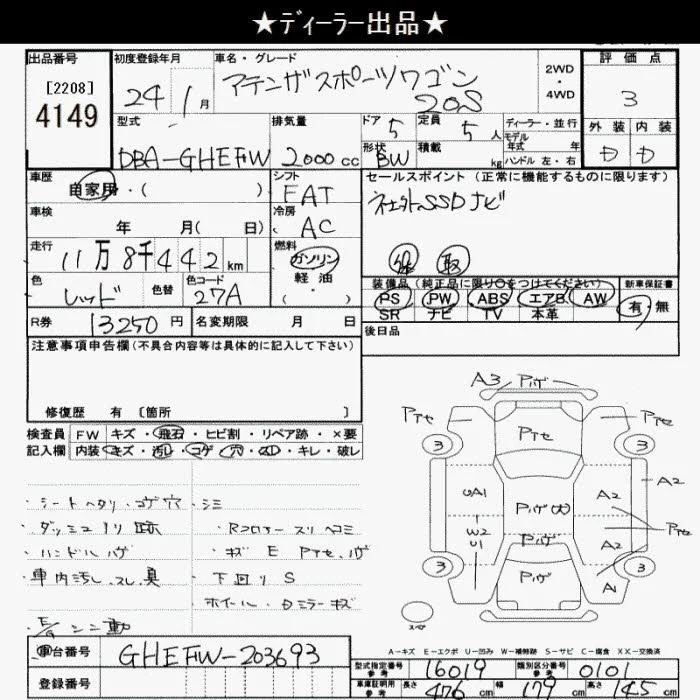 ★ディーラー出品★
出品番号
[2208]
4149
初度登録年月
24年 1月
車名・グレード
アテンザスポーツワゴン
20S
2WD
・
4WD
評価点
3
外装 内装
D D
型式
DBA-GHEFW
排気量
2000cc
ドア 5
定員 5人
形状 BW
積載 kg
ディーラー・並行
モデル年式 年
ハンドル 左・右
車歴
自家用・( )
シフト
FAT
セールスポイント (正常に機能するものに限ります)
社外SSDナビ
保 取
車検
年 月( 日)
冷房
AC
走行
11万8千442km
燃料
ガソリン
軽油
・( )
色
レッド
色替
色コード
27A
装備品(純正品に限り○をつけてください)
PS PW ABS エアB AW
SR ナビ TV 本革
新車保証書
有・無
R券
13250円
名変期限 月 日
後日品
注意事項申告欄(不具合内容等は具体的に記入して下さい)
修復歴 有 [箇所 ]
検査員記入欄
FW キズ・飛石・ヒビ割・リペア跡・×要
内装 キズ・汚レ・コゲ・穴・スレ・キレ・破レ
・シートヘタリ・コゲ穴・シミ
・ダッシュノリ跡
・ハンドルハゲ
・車内汚レ、スレ、臭
・Rコロアースリヘコミ
・キズEPアセ、ハゲ
・下回りS
・ホイール・Dミラーキズ
A3 Pハゲ
Pアセ
Pアセ
Pアセ
3
3
UA1
Pハゲ(大)
A2
A2
Pハゲ
W2
U1
A2
Pアセ
Pハゲ
A1
3
3
スペア
A-キズ E-エクボ U-凹み W-補修跡 S-サビ C-腐食 XX-交換済
車台番号
GHEFW-203693
登録番号
型式指定番号 参考
16019
類別区分番号 参考
0101
車庫証明用 参考
長さ 476cm
幅 179cm
高さ 145cm